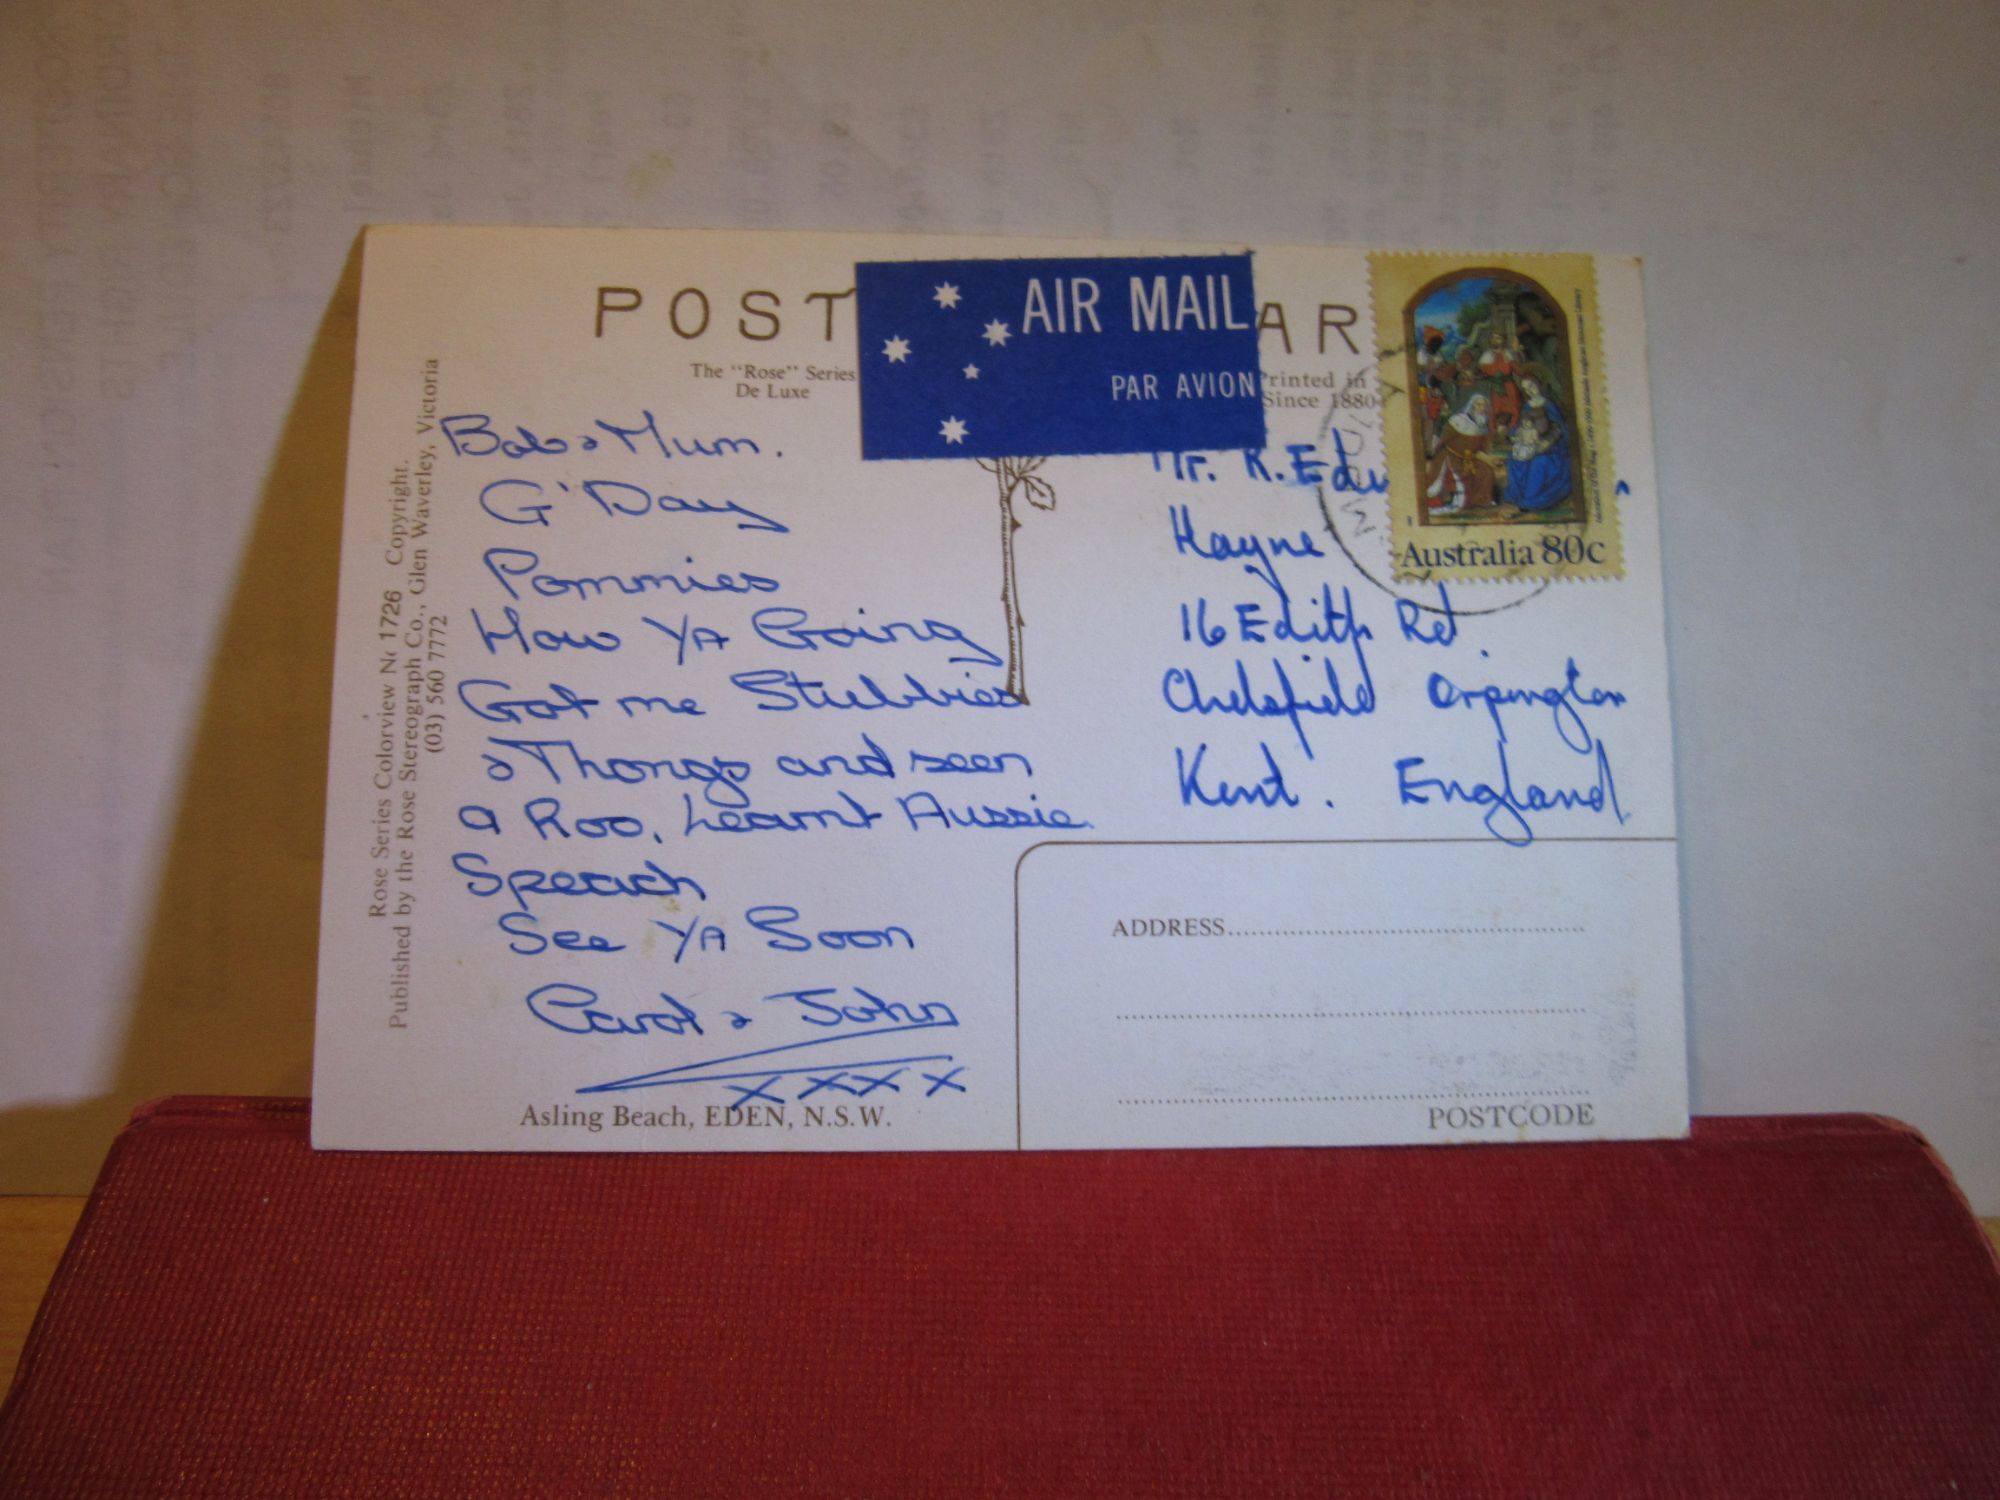 POST
AR
AIR MAIL
PAR AVION
The "Rose" Series
De Luxe
Printed in
Since 1880
Australia 80c
Rose Series Colorview Nº 1726 Copyright.
Published by the Rose Stereograph Co., Glen Waverley, Victoria
(03) 560 7772
Bob & Mum.
G'Day
Pommies
How YA Going
Got me Stubbies
& Thongs and seen
a Roo, Learnt Aussie
Speach
See YA Soon
Carol & John
xxxx
Asling Beach, EDEN, N.S.W.
Mr. R. Edw
Hayne
16 Edith Rd.
Chelsfield Orpington
Kent. England
ADDRESS
POSTCODE